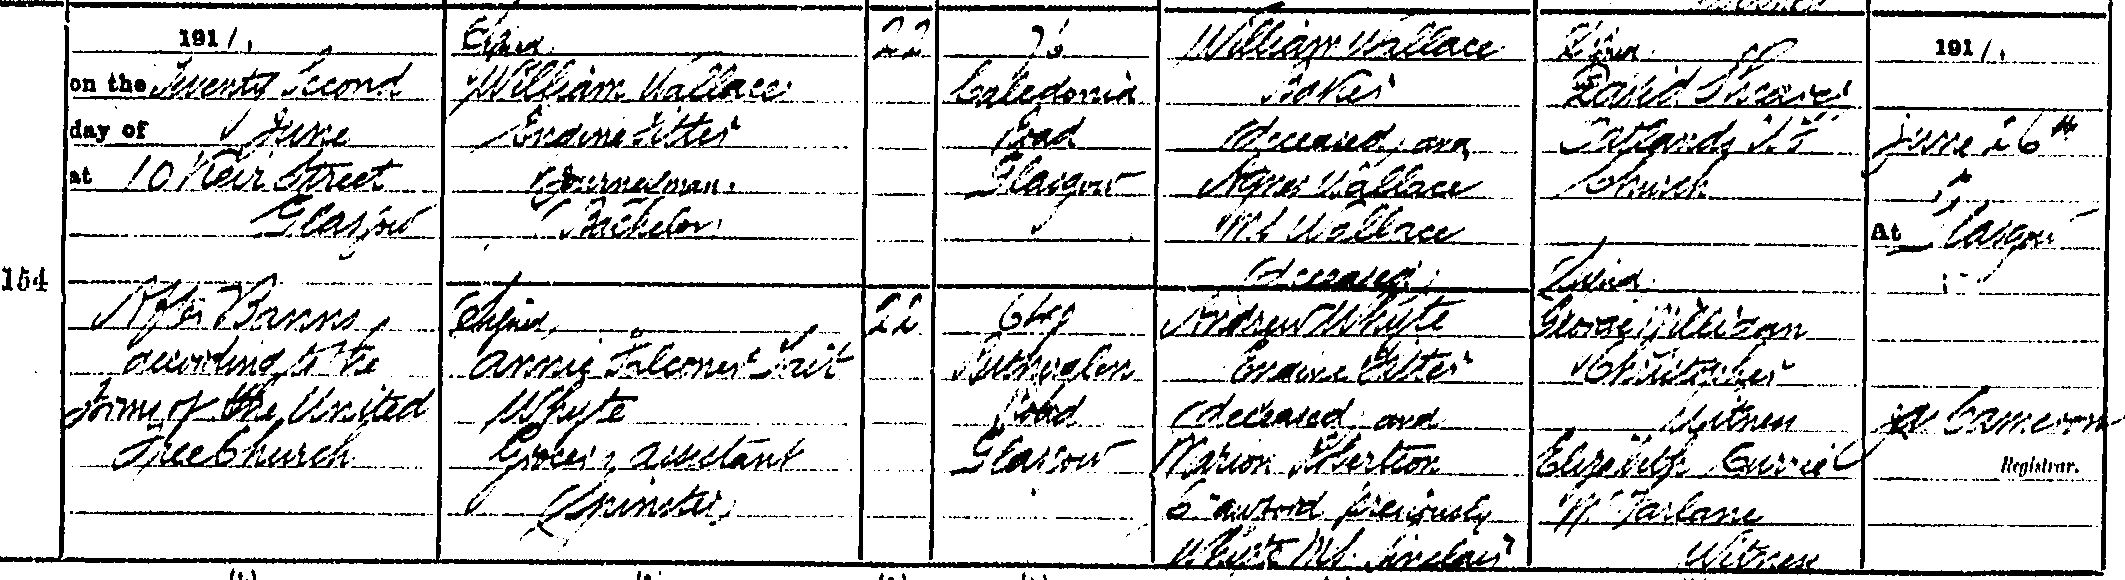 1911.
on the Twenty Second
day of June
at 10 Keir Street
Glasgow
154
After Banns
according to the
Forms of the United
Free Church
(Signed)
William Wallace
Engine Fitter
(Journeyman)
(Bachelor)
(Signed)
Annie Falconer Tait
Whyte
Grocer's assistant
(Spinster)
22
22
76
Caledonia
Road
Glasgow
649
Rutherglen
Road
Glasgow
William Wallace
Baker
(deceased) and
Agnes Wallace
M.S. Wallace
(deceased)
Andrew Whyte
Engine Fitter
(deceased) and
Marion Robertson
Crawford previously
Whyte M.S. Sinclair
(Signed)
David Shearer
Oatlands U.F.
Church
(Signed)
George Milligan
Christopher
Witness
Elizabeth Currie
McFarlane
Witness
1911.
June 26th
At Glasgow
Cameron
Registrar.